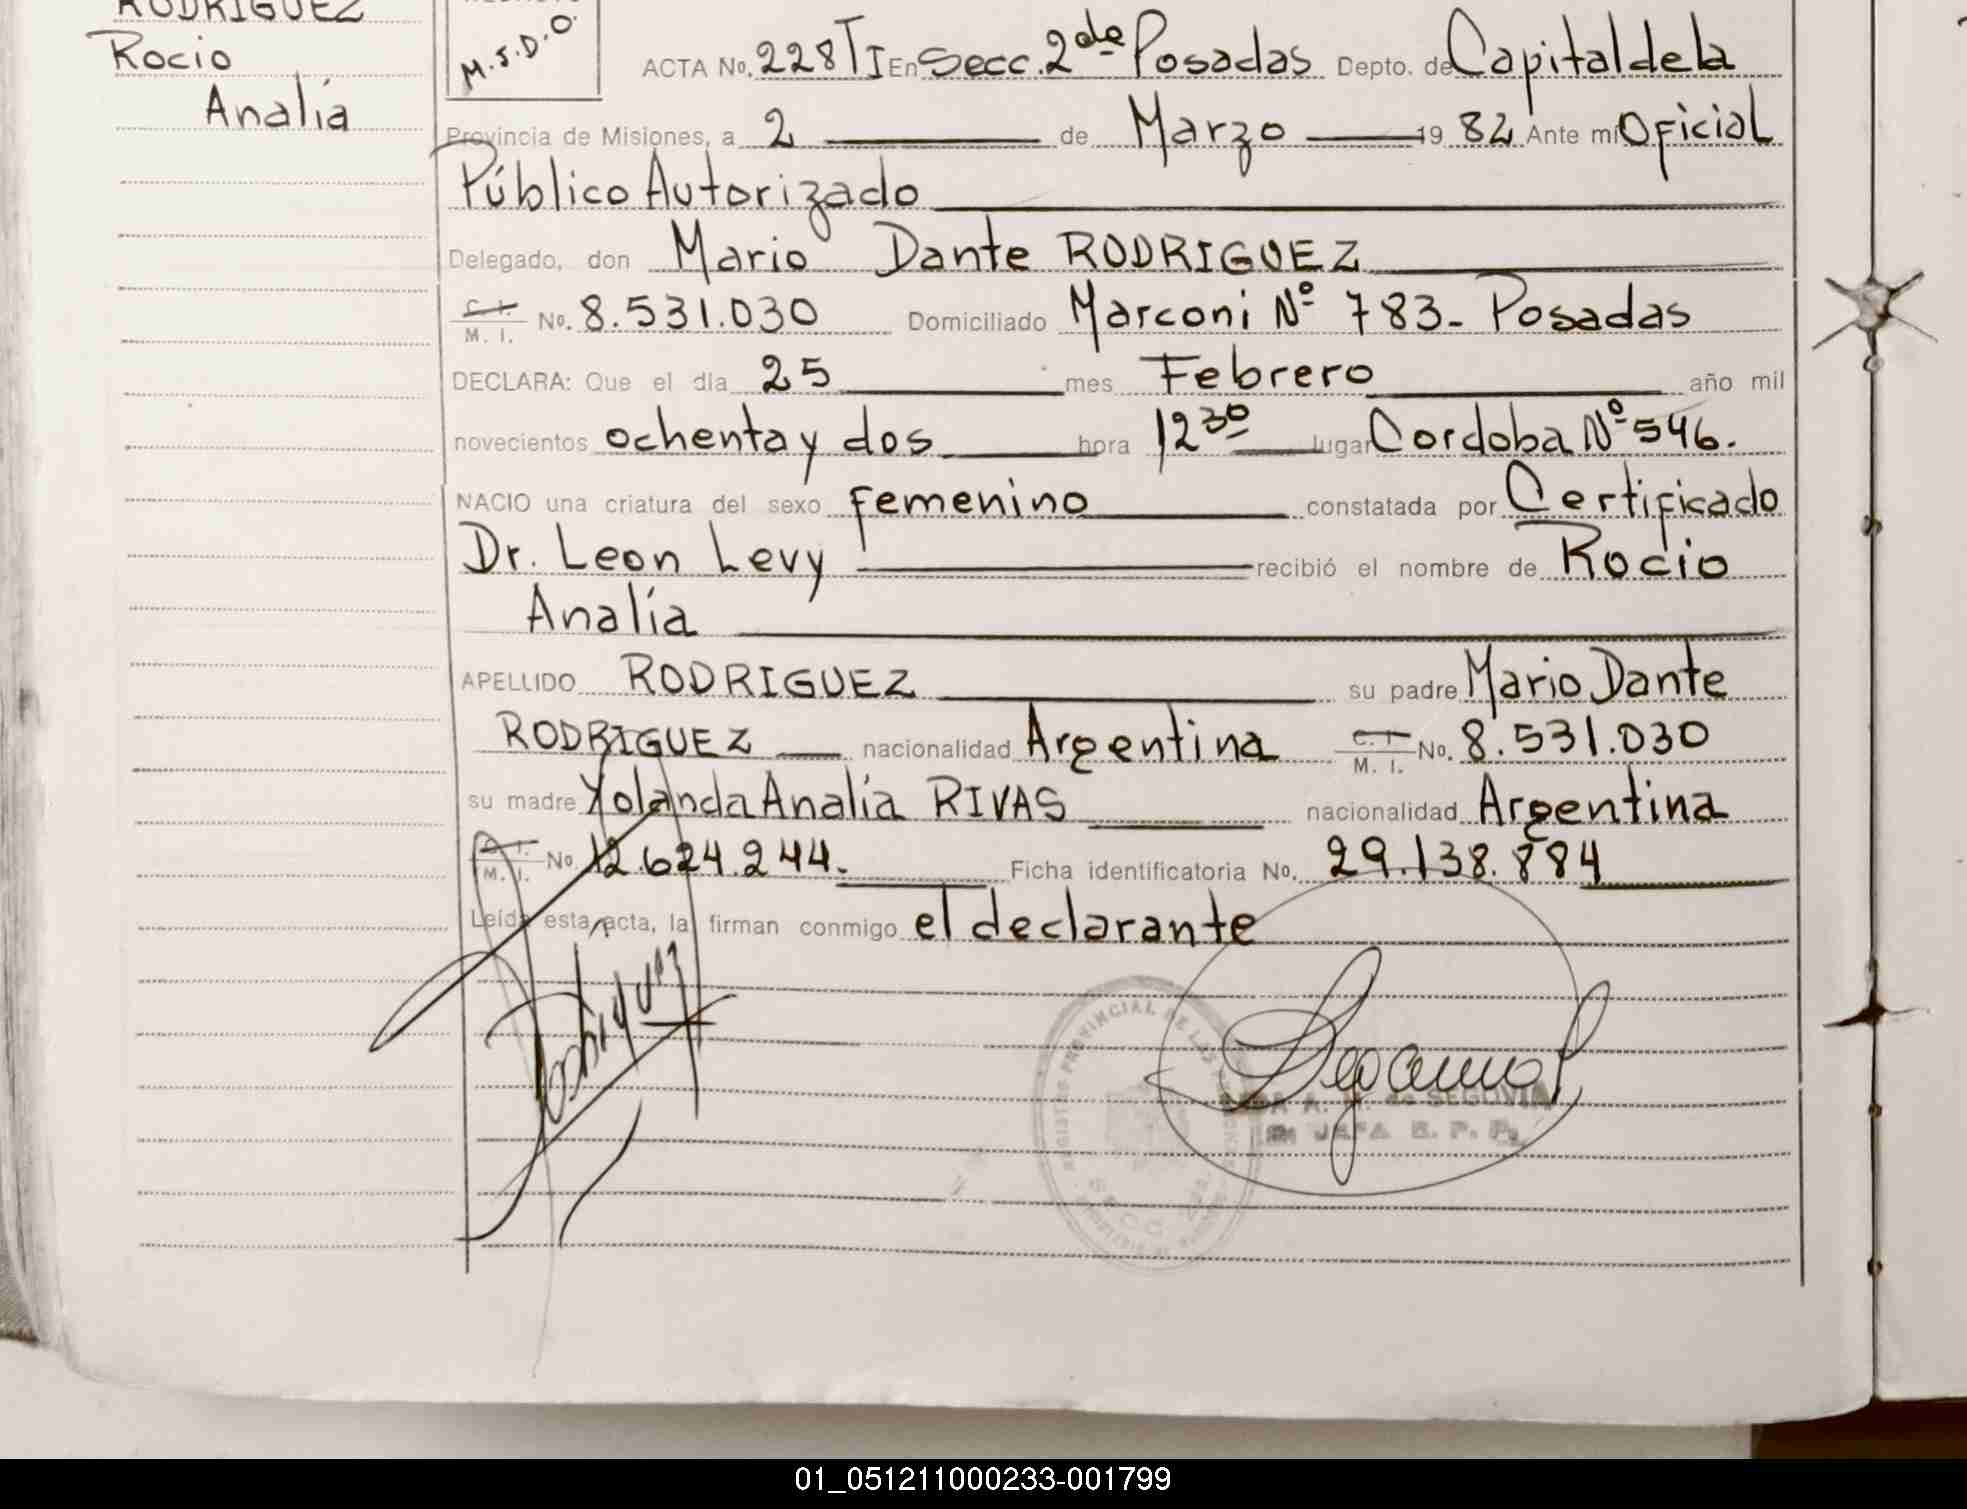 RODRIGUEZ
Rocio
Analía
M.S.D.O.
ACTA No. 228 TI En Secc. 2da de Posadas Depto. de Capital de la
Provincia de Misiones, a 2 de Marzo 1982 Ante mí Oficial
Público Autorizado
Delegado, don Mario Dante RODRIGUEZ
C. I. M. I. No. 8.531.030 Domiciliado Marconi Nº 783- Posadas
DECLARA: Que el día 25 mes Febrero año mil
novecientos ochenta y dos hora 12 30 lugar Cordoba Nº 546.
NACIO una criatura del sexo femenino constatada por Certificado
Dr. Leon Levy recibió el nombre de Rocio
Analía
APELLIDO RODRIGUEZ su padre Mario Dante
RODRIGUEZ nacionalidad Argentina C. I. M. I. No. 8.531.030
su madre Yolanda Analía RIVAS nacionalidad Argentina
C. I. M. I. No. 12.624.244. Ficha identificatoria No. 29.138.884
Leída esta acta, la firman conmigo el declarante
Rodriguez
REGISTRO PROVINCIAL DE LAS PERSONAS
SECC. 2da
A. M. de SEGOVIA
JEFA R. P. P.
01_051211000233-001799